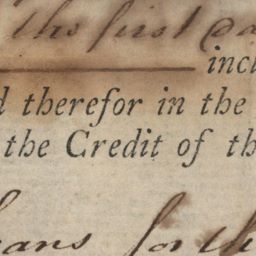 the first
incl
d therefor in the
the Credit of th
for th